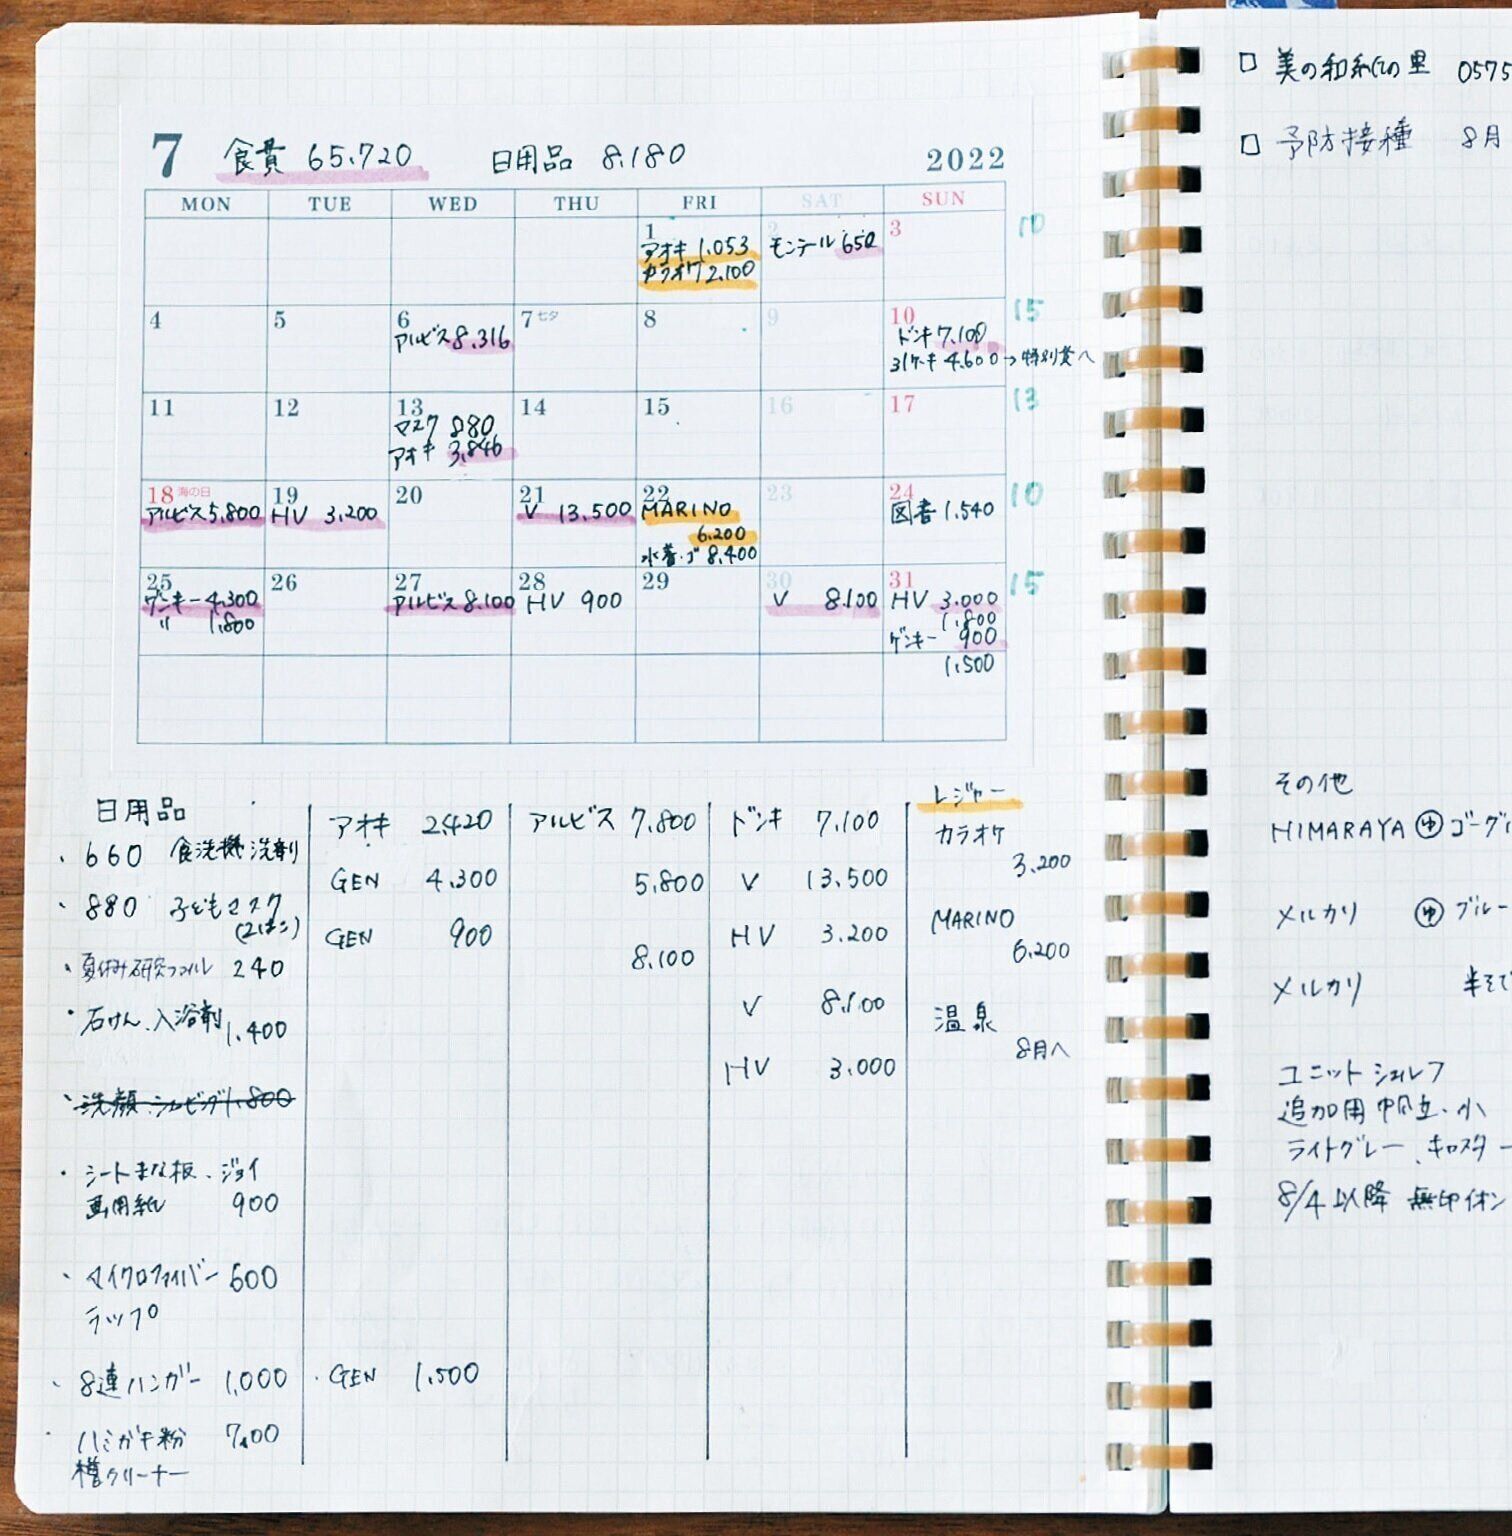 7 食費 65.720 日用品 8.180 2022
MON TUE WED THU FRI SAT SUN
1 2 3 10
アオキ 1.053 モンテール 650
カラオケ 2.100
4 5 6 7 七夕 8 9 10 15
アルビス 8.316 ドンキ 7.100
31ケーキ 4.600→特別費へ
11 12 13 14 15 16 17 13
マスク 880
アオキ 3.846
18 海の日 19 20 21 22 23 24 10
アルビス 5.800 HV 3.200 V 13.500 MARINO 図書 1.540
6.200
水着・ゴ 8.400
25 26 27 28 29 30 31 15
ゲンキー 4.300 アルビス 8.100 HV 900 V 8.100 HV 3.000
〃 1.800 1.800
ゲンキー 900
1.500
日用品
・660 食洗機洗剤
・880 子どもマスク
(2はこ)
・夏休み研究ファイル 240
・石けん、入浴剤
1.400
・洗顔、シェービング 1.800
・シートまな板、ジョイ
画用紙 900
・マイクロファイバー 600
ラップ
・8連ハンガー 1,000
・ハミガキ粉 700
樽クリーナー
アオキ 2.420
GEN 4.300
GEN 900
・GEN 1.500
アルビス 7.800
5.800
8.100
ドンキ 7.100
V 13.500
HV 3.200
V 8.100
HV 3.000
レジャー
カラオケ
3.200
MARINO
6.200
温泉
8月へ
□ 美の和紙の里 0575
□ 予防接種 8月
その他
HIMARAYA ゆ ゴーグル
メルカリ ゆ ブルー
メルカリ 半そで
ユニットシェルフ
追加用帆立・小
ライトグレー、キャスター
8/4以降 無印イオン